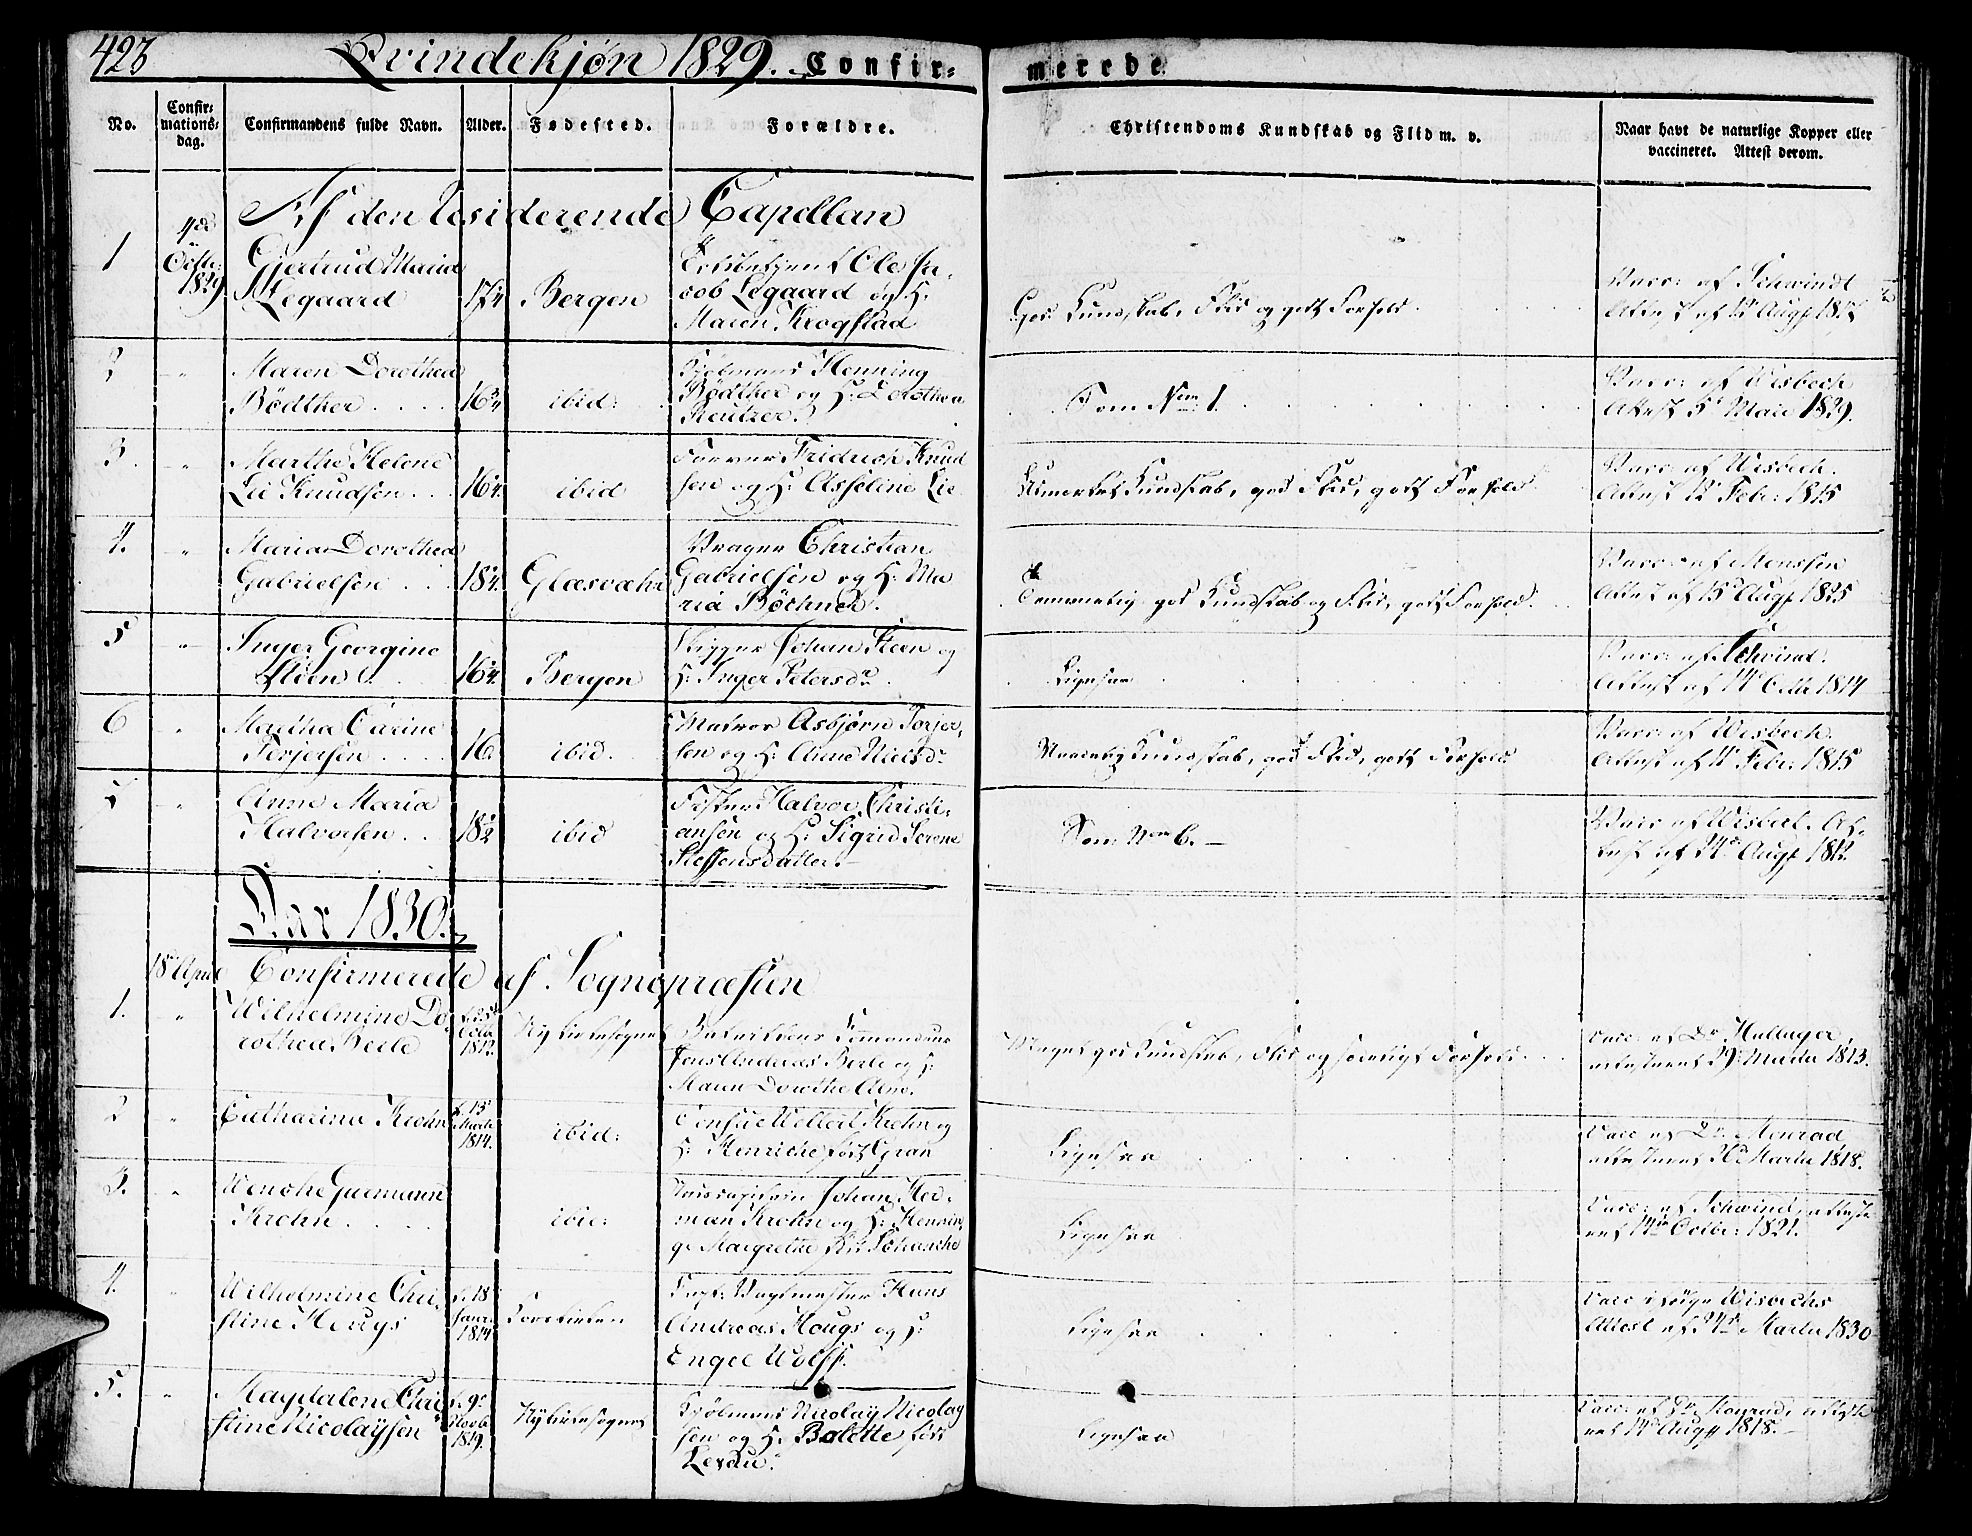 423 Qvindekjøn 1829. Confir-
merede
No.
Confir-
mations-
dag.
Confirmandens fulde Navn.
Alder.
Fødested.
Forældre.
Christendoms Kundskab og Flid m. v.
Naar havt de naturlige Kopper eller
vaccineret. Attest derom.
Af den residerende Capellan
1
4de
Octbr:
1829
Gjertrud Maria
Legaard
17¼
Bergen
Ole Ja-
cob Legaard og H:
Maren Krogstad
God Kundskab, Flid og godt Forhold.
Vacc: af Schwindt
Attest af 12 Aug
2
"
Maren Dorothea
Bödtker . . . .
16¾
ibid:
Kjøbmand Henning
Bødtker og H: Dorothea
Reutzer.
Som Nro 1.
Vacc: af Wisbech
Attest 5t Maii 1829.
3.
"
Marthe Helene
Lie Knudsen . . .
16¼.
ibid
Farver Fridrich Knud
sen og H: Asseline Lie
Udmærket Kundskab, god Flid, godt Forhold.
Vacc: af Wisbech.
Attest 12 Febr: 1815
4.
"
Maria Dorothea
Gabrielsen . . .
18¼.
Glæsvæhr
Vrager Christian
Gabrielsen og H: Ma
ria Böchner.
Temmelig god Kundskab og Flid, godt Forhold.
Vacc: af Monssen
Attest af 15d Aug 1825
5
"
Inger Georgine
Steen . . .
16¼.
Bergen
Skipper Johan Steen og
H: Inger Petersdr.
Ligesaa
Vacc: af Schvind.
Attest af 14 Octbr 1814
6
"
Martha Carine
Terjersen . . . .
16.
ibid.
Matros Asbjørn Torjer-
sen og H: Anne Nielsdr
Maadelig Kundskab, god Flid, godt Forhold
Vacc: af Wisbech.
Attest af 11 Febr: 1815
7
"
Anne Maria
Halvorsen . . .
18½
ibid
Halvor Christi-
ansen og H: Sigrid Serene
Steffensdatter.
Som Nro 6. —
Vacc af Wisbech. At-
test af 24d Aug 1812.
Aar 1830.
18 April
Confirmerede af Sognepræsten
1.
"
Wilhelmine Do-
rothea Berle
f. 25
Octb
1812.
Nykirkesognet
Jens Andreas Berle og H:
Maren Dorothe Alne.
Meget god Kundskab, Flid og sædeligt Forhold . . .
Vacc: af Dr. Hallager,
attesteret 29 Martii 1813.
2
"
Catharina Krohn
f. 15
Martii
1814.
ibid:
Consul Wollert Krohn og
H: Henriche født Gran
Ligesaa
Vacc af Dr. Monrad
attesteret 20d Martii 1818.
3.
"
Wenche Giermann
Krohn . . . .
ibid:
Johan Hed-
man Krohn og H: Hennin-
ge Margrethe født
Ligesaa
Vacc: af Schwind, atteste
ret 14de Octbr: 1821.
4.
"
Wilhelmine Chri-
stine Hougs
f. 18
Janr.
1814
Korskirken
Vagtmester Hans
Andreas Hougs og H:
Engel Wolff.
Ligesaa
Vacc ifølge Wisbechs
Attest af 24 Martii 1830
5.
"
Magdalene Chri
stine Nicolaysen
f. 9d
Novb.
Nykirkesognet
Kjøbmand Nicolay Nicolay
sen og H. Bolette født
Lexau.
Ligesaa
Vacc: af Dr. Monrad, atteste
ret 14d Aug 1818. —